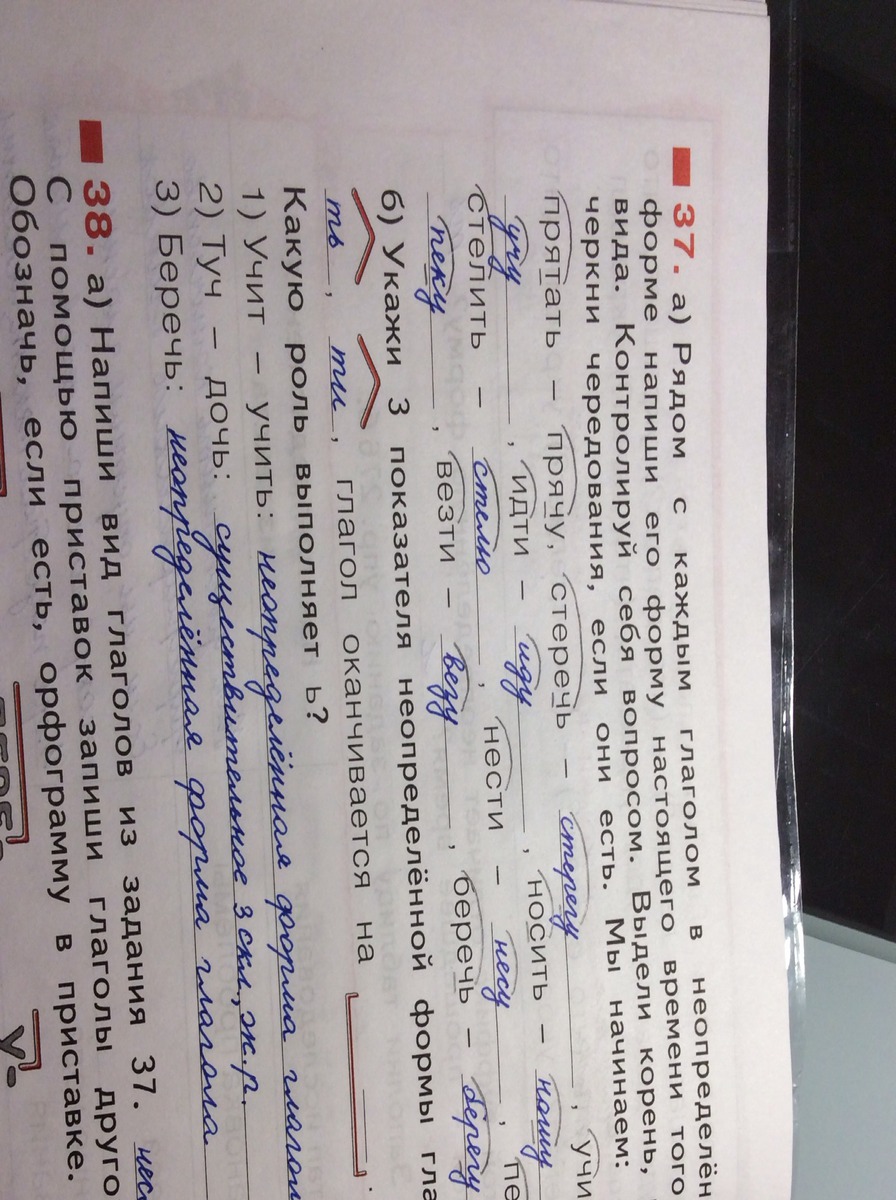 37. а) Рядом с каждым глаголом в неопределён
форме напиши его форму настоящего времени того
вида. Контролируй себя вопросом. Выдели корень,
черкни чередования, если они есть. Мы начинаем:
прятать – прячу, стеречь – стерегу, учи
учу, идти – иду, носить – ношу
стелить – стелю, нести – несу, пе
пеку, везти – везу, беречь – берегу
б) Укажи 3 показателя неопределённой формы гла
ть, ти, глагол оканчивается на
Какую роль выполняет ь?
1) Учит – учить: неопределённая форма глагол
2) Туч – дочь: существительное 3 скл., ж.р.
3) Беречь: неопределённая форма глагола
38. а) Напиши вид глаголов из задания 37. нес
С помощью приставок запиши глаголы друго
Обозначь, если есть, орфограмму в приставке.
у-